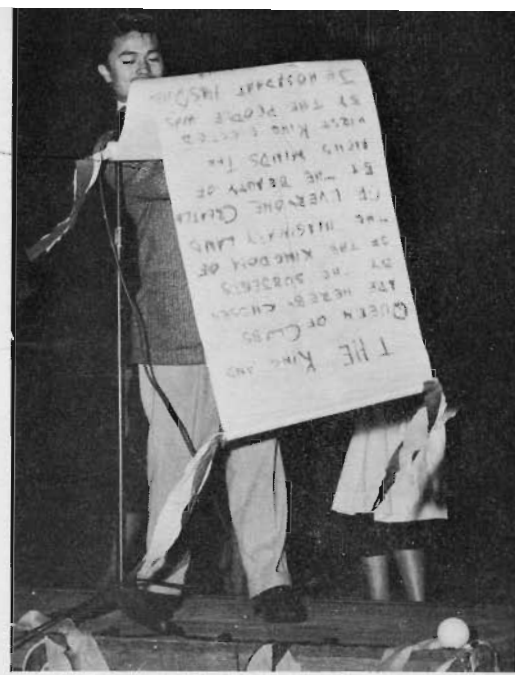 THE KING AND
QUEEN OF CLUBS
ARE HEREBY CHOSEN
BY THE SUBJECTS
OF THE KINGDOM OF
THE LAND
OF EVERYONE CREATED
BY THE BEAUTY OF
MINDS THE
FIRST KING ELECTED
BY THE PEOPLE WAS